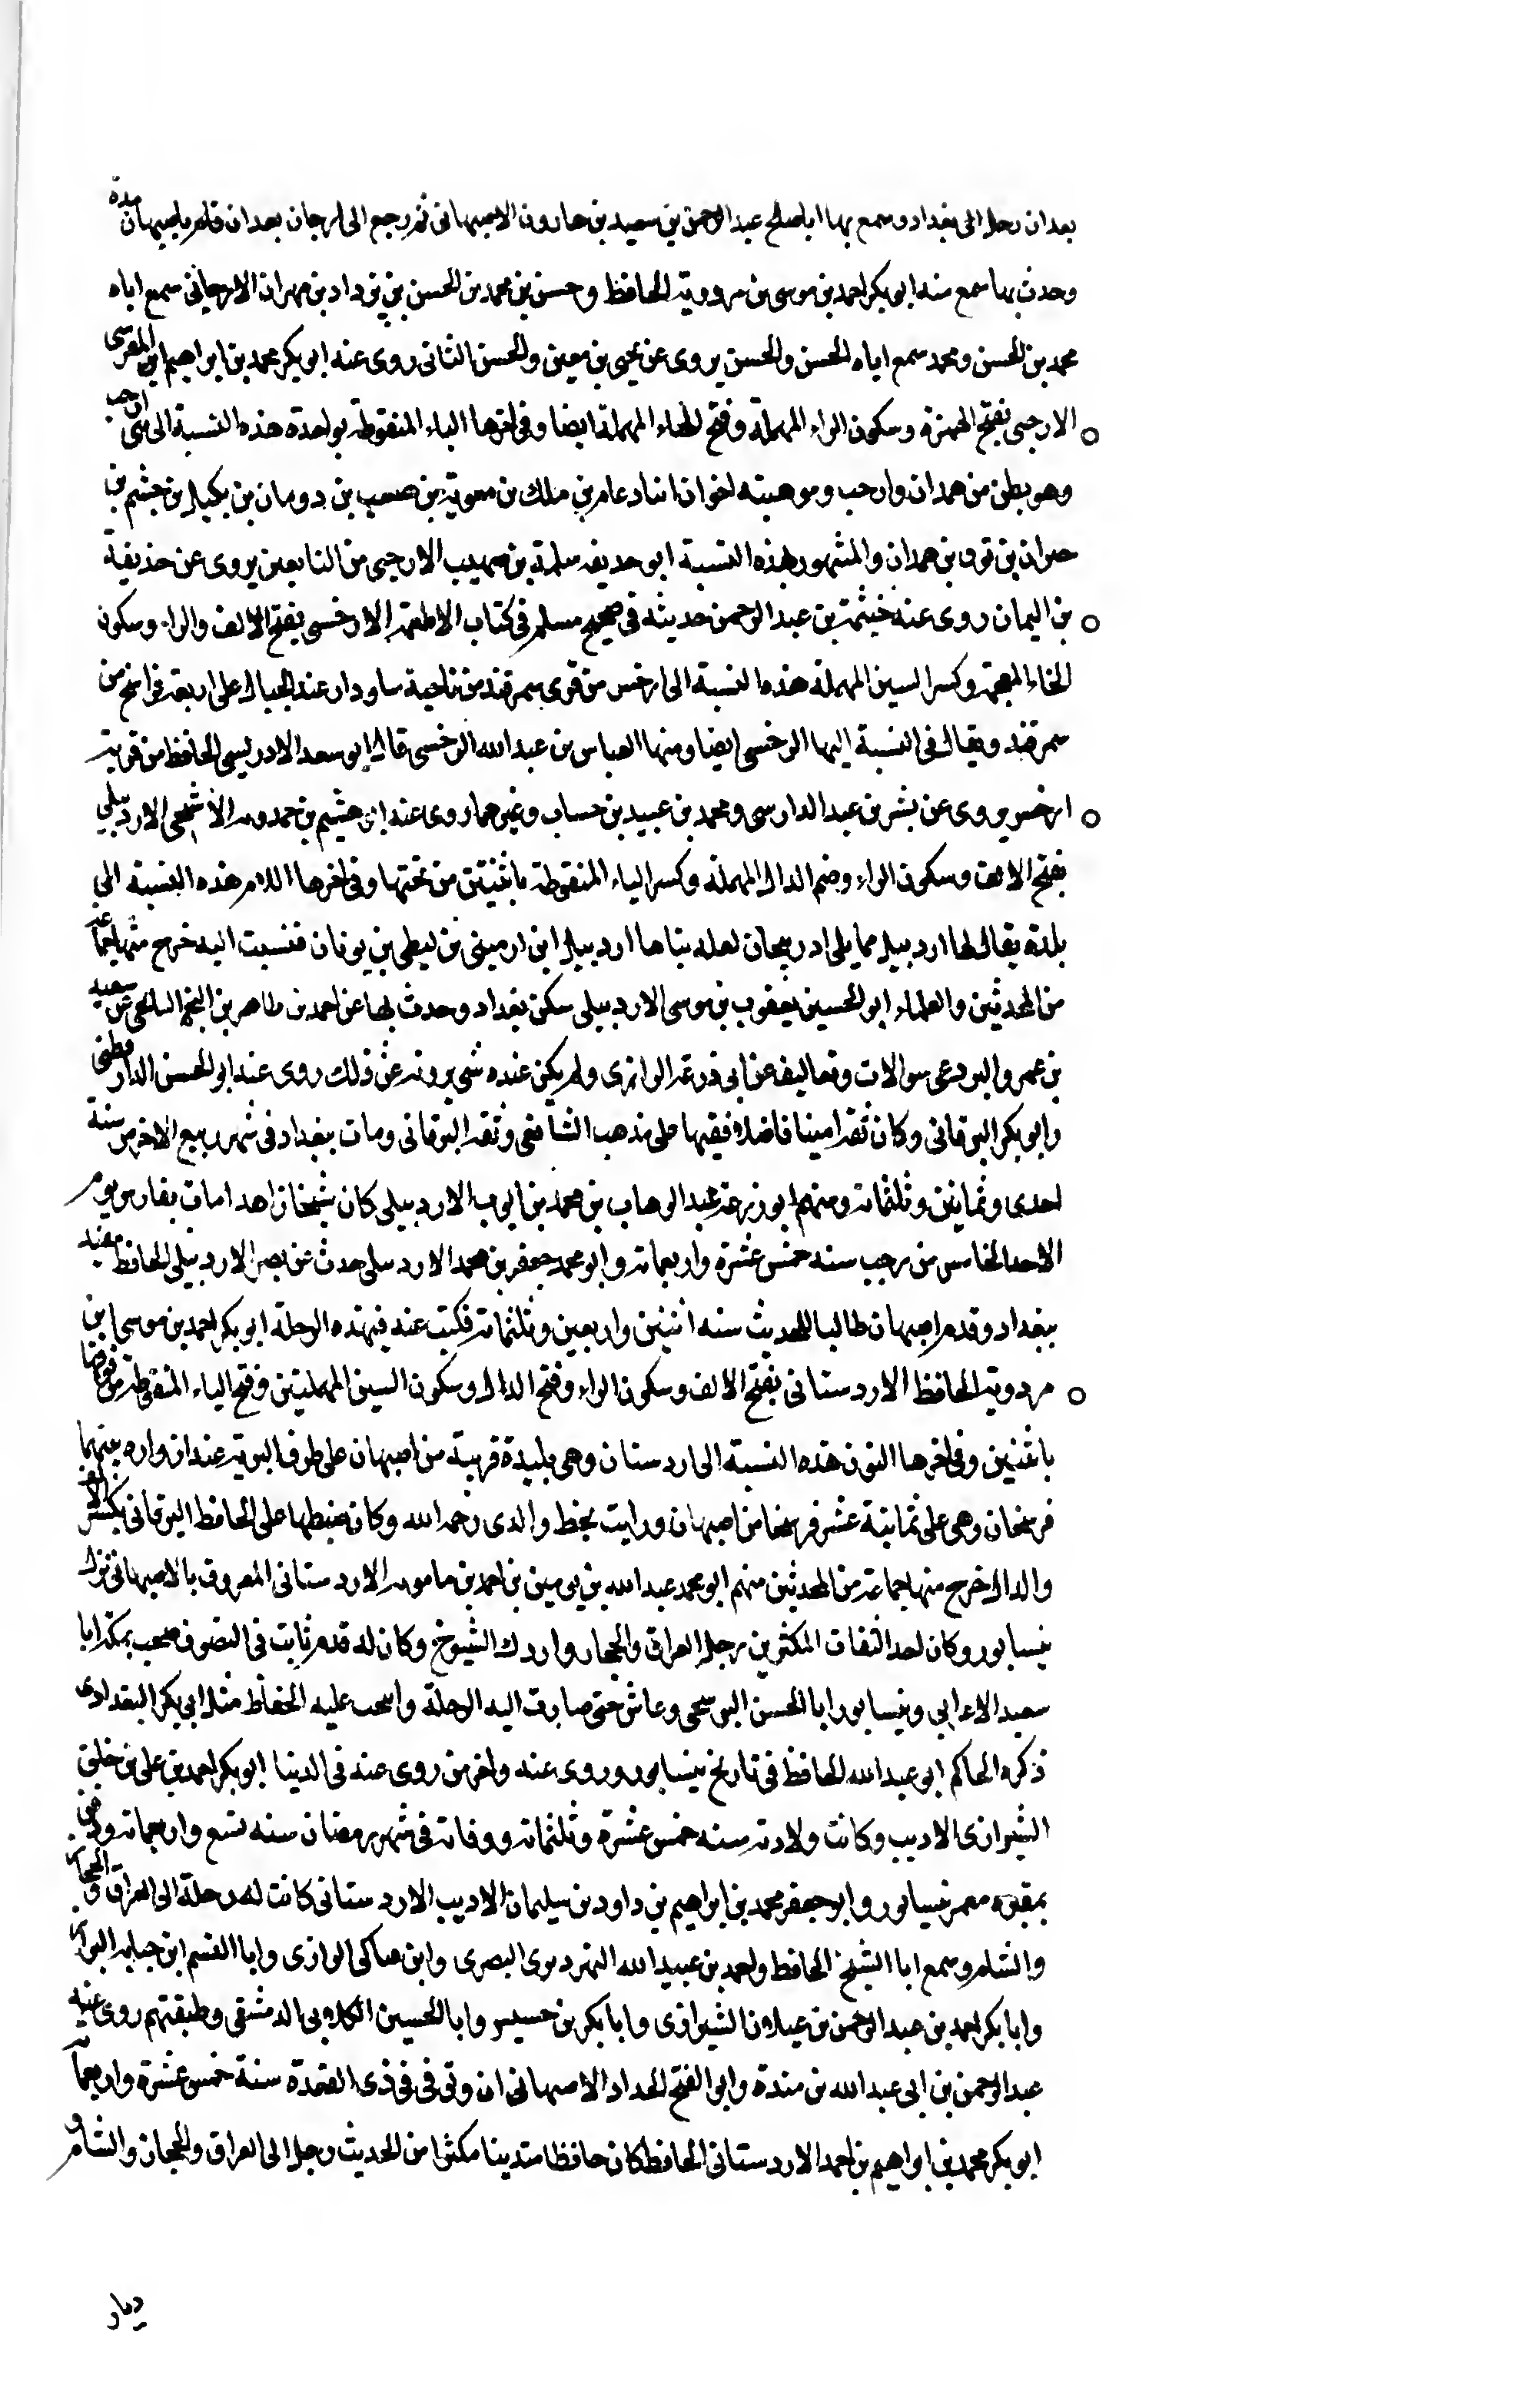 بعد ان رحل الى بغداد وسمع بها اباصلح عبد الرحمن بن سعيد بن هارون الاصبهانى ثم رجع الى ارجان بعد ان قام باصبهان مدة
وحدث بها سمع منه ابو بكر احمد بن موسى بن مردوية الحافظ وحسن بن محمد بن الحسن بن يزداد بن مهران الارجانى سمع اباه
محمد بن الحسن ومحمد سمع اباه الحسن والحسن يروى عن يحيى بن معين والحسن الثانى روى عنه ابو بكر محمد بن ابراهيم ابن المقرى
الارحبى بفتح الهمزة وسكون الراء المهملة وفتح الحاء المهملة ايضا وفى اخرها الباء المنقوطة بواحدة هذه النسبة الى بنى ارحب
وهو بطن من همدان وارحب وموهبته اخوان ابناد عامر بن ملك بن معوية بن صعب بن دومان بن بكيل بن جشم بن
حبران بن نوف بن همدان والمشهور بهذه النسبة ابو حديفه سلمة بن صهيب الارحبى من التابعين يروى عن حذيفة
بن اليمان روى عنه خيثمة بن عبد الرحمن حديثه فى صحيح مسلم فى كتاب الاطعمة الارخسى بفتح الالف والراء وسكون
الخاء المعجمة وكسر السين المهملة هذه النسبة الى ارخس من قرى سمرقند من ناحية ساودار عند الجبال على اربعة فراسخ من
سمرقند ويقال فى النسبة اليها الرخسى ايضا ومنها العباس بن عبد الله الرخسى قال ابو سعد الادريسى الحافظ من قرية
ارخس يروى عن بشر بن عبد الدارسى ومحمد بن عبيد بن حساب وغيرهما روى عنه ابن جشيم بن حمدويه الاشتيخى الاردبيلى
بفتح الالف وسكون الراء وضم الدال المهملة وكسر الياء المنقوطة باثنتين من تحتها وفى اخرها اللام هذه النسبة الى
بلدة يقال لها اردبيل مما يلى ادربيجان لعله بناها اردبيل ابن ارمينى بن ليطى بن يونان فنسبت اليه خرج منها جماعة
من المحدثين والعلماء ابو الحسين يعقوب بن موسى الاردبيلى سكن بغداد وحدث بها عن احمد بن طاهر بن النجم المايحى عن سعيد
بن عمرو البردعى سوالات وتعاليف عن ابى زرعة الرازى ولم يكن عنده شى يرويه غير ذلك روى عنه ابو الحسن الدارقطنى
وابو بكر البرقانى وكان ثقة امينا فاضلا فقيها على مذهب الشافعى وثقه البرقانى ومات ببغداد فى شهر ربيع الاخر من سنة
احدى وثمانين وثلثمائة ومنهم ابو زرعة عبد الوهاب بن محمد بن ايوب الاردبيلى كان شيخا زاهدا مات بفارس يوم
الاحد الخامس من رجب سنه خمس عشرة واربعمائه وابو محمد جعفر بن محمد الاردبيلى حدث عن بصر الاردبيلى الحافظ مفيد
ببغداد وقدم اصبهان طالبا للحديث سنه اثنتين واربعين وثلثمائة فكتب عنه فى هذه الرحلة ابو بكر احمد بن موسى ابن
مردوية الحافظ الاردستانى بفتح الالف وسكون الراء وفتح الدال وسكون السين المهملتين وفتح الياء المنقوطة من فوقها
باثنتين وفى اخرها النون هذه النسبة الى اردستان وهى بليدة قريبة من اصبهان على طرف البرية عند ازواره بينهما
فرسخان وهى على ثمانية عشر فرسخا من اصبهان ورايت بخط والدى رحمه الله وكان ضبطها على الحافظ البرقانى بكسر الالف
والدال خرج منها جماعة من المحدثين منهم ابو محمد عبد الله بن يومين بن احمد بن مامويه الاردستانى المعروف بالاصبهانى نزل
نيسابور وكان احد الثقات المكثرين رحل العراق والحجاز وادرك الشيوخ وكان له قدم ثابت فى التصوف صحب بمكة ابا
سعيد الاعرابى وبنيسابور ابا الحسن البوسحى وعاش حتى صارت اليه الرحلة وانتخب عليه الحفاظ مثل ابى بكر البغدادى
ذكره الحاكم ابو عبد الله الحافظ فى تاريخ نيسابور وروى عنه واخر من روى عنه فى الدنيا ابو بكر احمد بن على بن خلف
الشيرازى الاديب وكانت ولادته سنه خمس عشرة وثلثمائة ووفاته فى شهر رمضان سنه تسع واربعمائة ودفن
بمقبرة معمر نيسابور وابو جعفر محمد بن ابراهيم بن داود بن سليمان الاديب الاردستانى كانت له رحلة الى العراق والحجاز
والشام وسمع ابا الشيخ الحافظ واحمد بن عبيد الله النهرديرى البصرى وابن هناكى الرازى وابا القسم ابن حبابه البزاز
وابا بكر احمد بن عبد الرحمن بن عبدان الشيرازى وابا بكر بن حسيس وابا الحسين الكلابى الدمشقى وطبقتهم روى عنه
عبد الرحمن بن ابى عبد الله بن مندة وابو الفتح الحداد الاصبهانى ان وتوفى فى ذى القعدة سنة خمس عشرة واربعمائة
ابو بكر محمد بن ابراهيم بن احمد الاردستانى الحافظ كان حافظا متدينا مكثرا من الحديث رحل الى العراق والحجاز والشام و